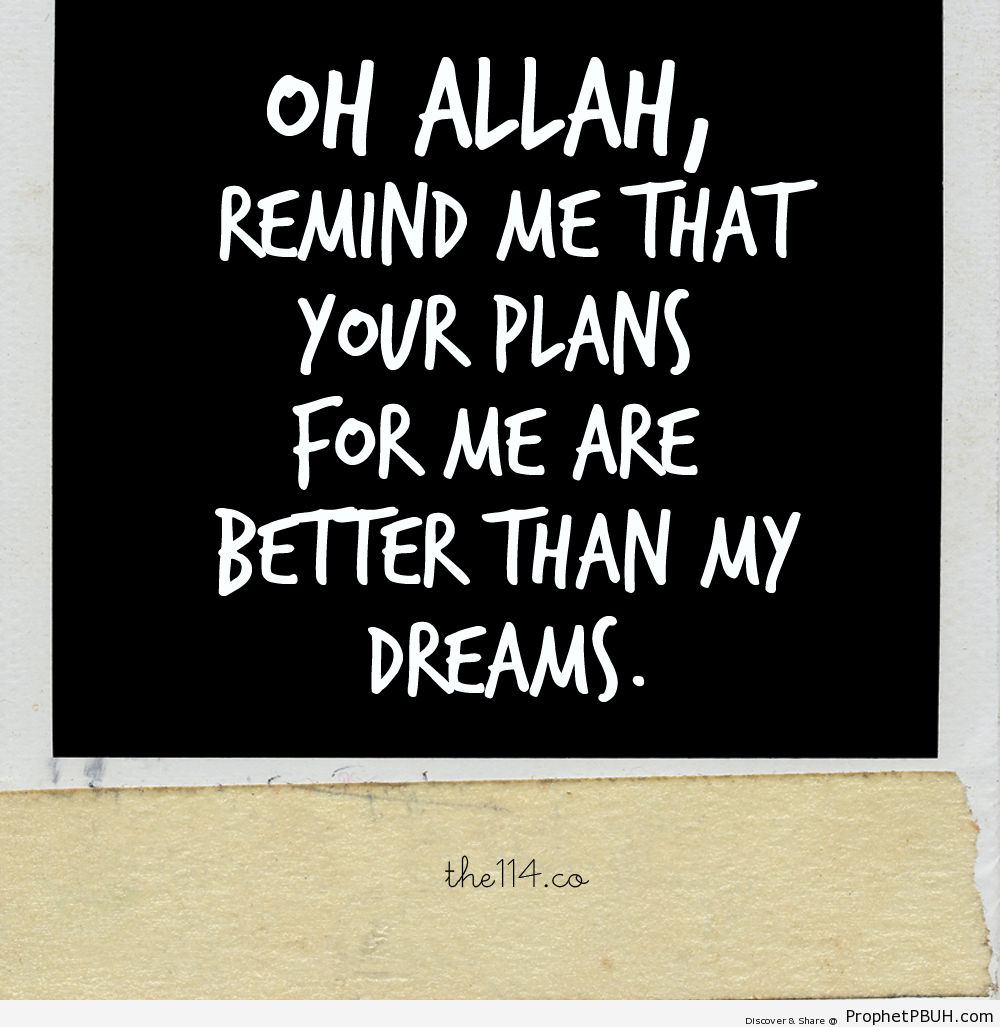 OH ALLAH,
REMIND ME THAT
YOUR PLANS
FOR ME ARE
BETTER THAN MY
DREAMS.
the114.co
Discover & Share @ ProphetPBUH.com